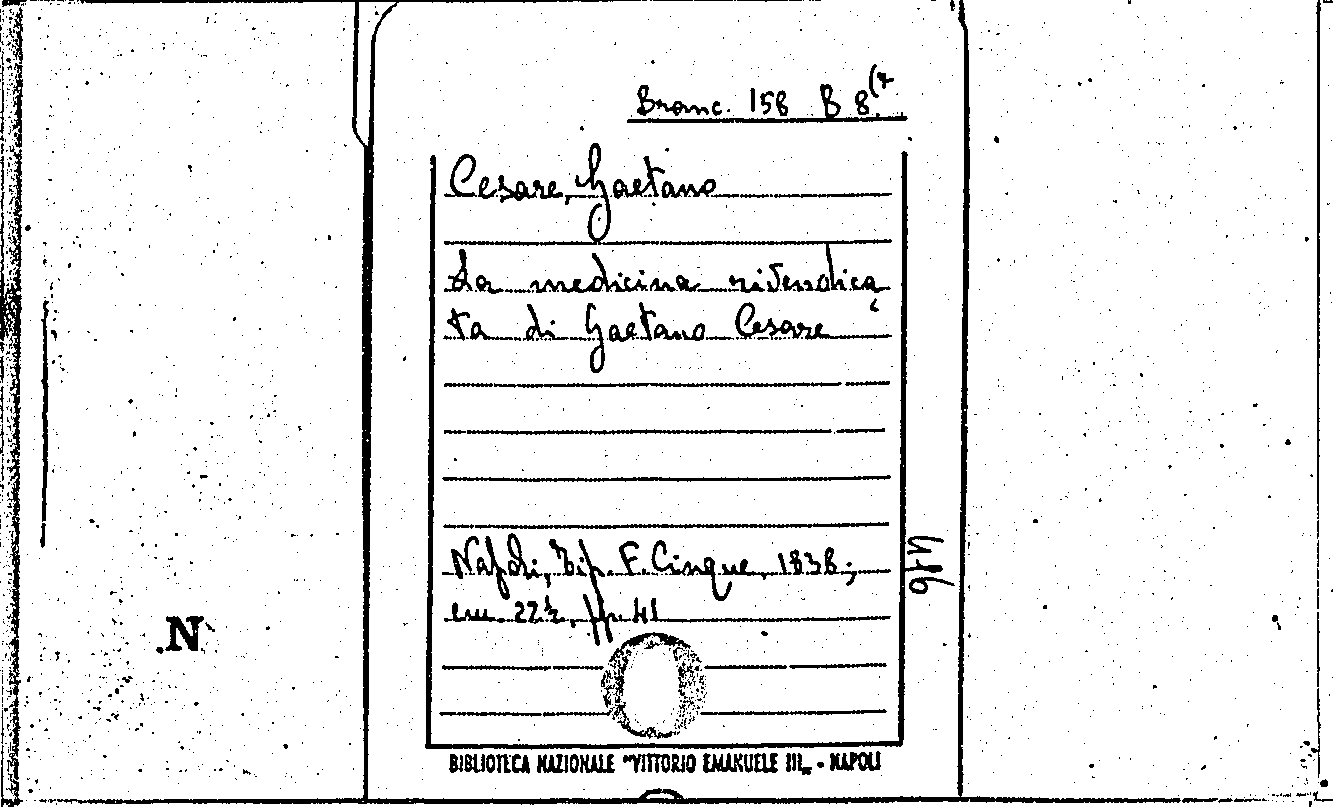 Branc. 158 B 8(2
Cesare, Gaetano
La medicina rivendica
ta di Gaetano Cesare
Napoli, Tip. F. Cinque, 1838;
cm. 22½, pp. 41
N
BIBLIOTECA NAZIONALE "VITTORIO EMANUELE III„ - NAPOLI